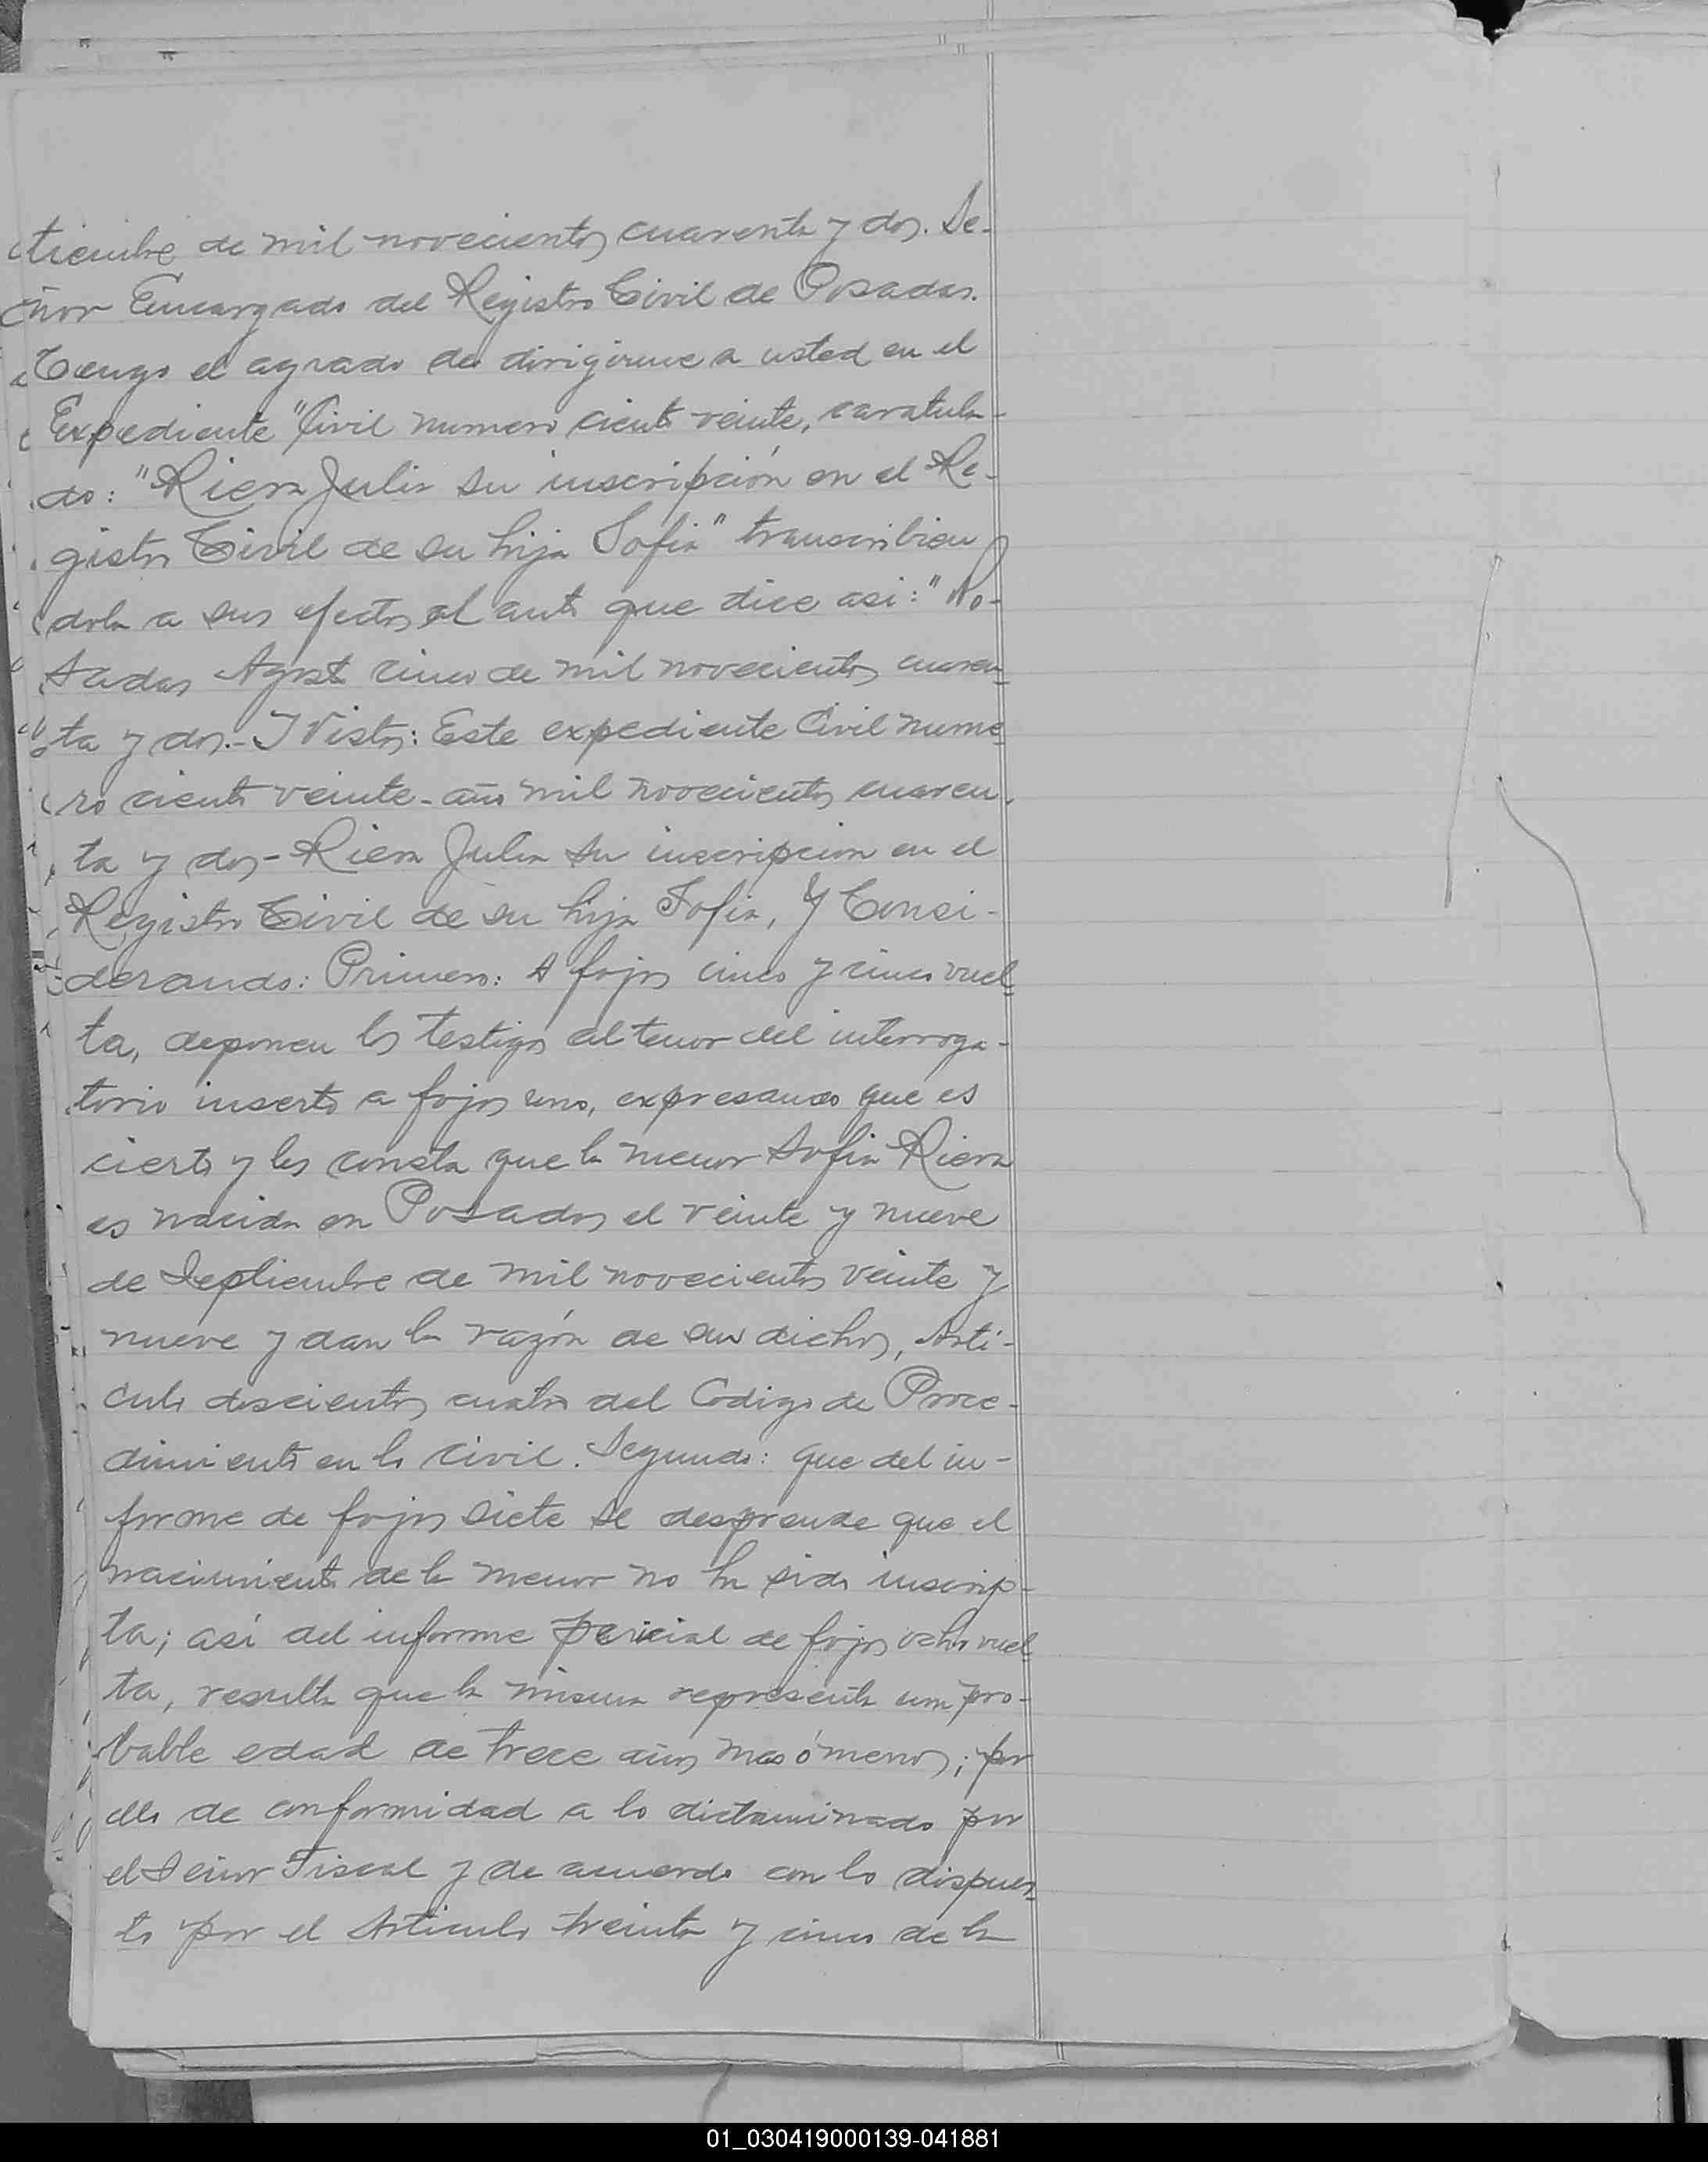 tiembre de mil novecientos cuarenta y dos. Se-
ñor Encargado del Registro Civil de Posadas.
Tengo el agrado de dirigirme a usted en el
Expediente "Civil numero ciento veinte, caratula-
do: "Riera Julia su inscripción en el Re-
gistro Civil de su hija Sofia" transcribien
dole a sus efectos el auto que dice asi: "Po-
sadas Agosto cinco de mil novecientos cuaren-
ta y dos.- Y Vistos: Este expediente Civil nume-
ro ciento veinte - año mil novecientos cuaren-
ta y dos - Riera Julia su inscripcion en el
Registro Civil de su hija Sofia, Y Consi-
derando: Primero: A fojas cinco y cinco vuel-
ta, deponen los testigos al tenor del interroga-
torio inserto a fojas uno, expresando que es
cierto y les consta que la menor Sofia Riera
es nacida en Posadas el veinte y nueve
de Septiembre de mil novecientos veinte y
nueve y dan la razón de sus dichos, Arti-
culo doscientos cuatro del Codigo de Proce-
dimiento en lo Civil. Segundo: que del in-
forme de fojas siete se desprende que el
nacimiento de la menor no ha sido inscrip-
ta; así del informe pericial de fojas ocho vuel-
ta, resulta que la misma representa una pro-
bable edad de trece años mas ó menos; por
ello de conformidad a lo dictaminado por
el Señor Fiscal y de acuerdo con lo dispues-
to por el Articulo treinta y cinco de la
01_030419000139-041881